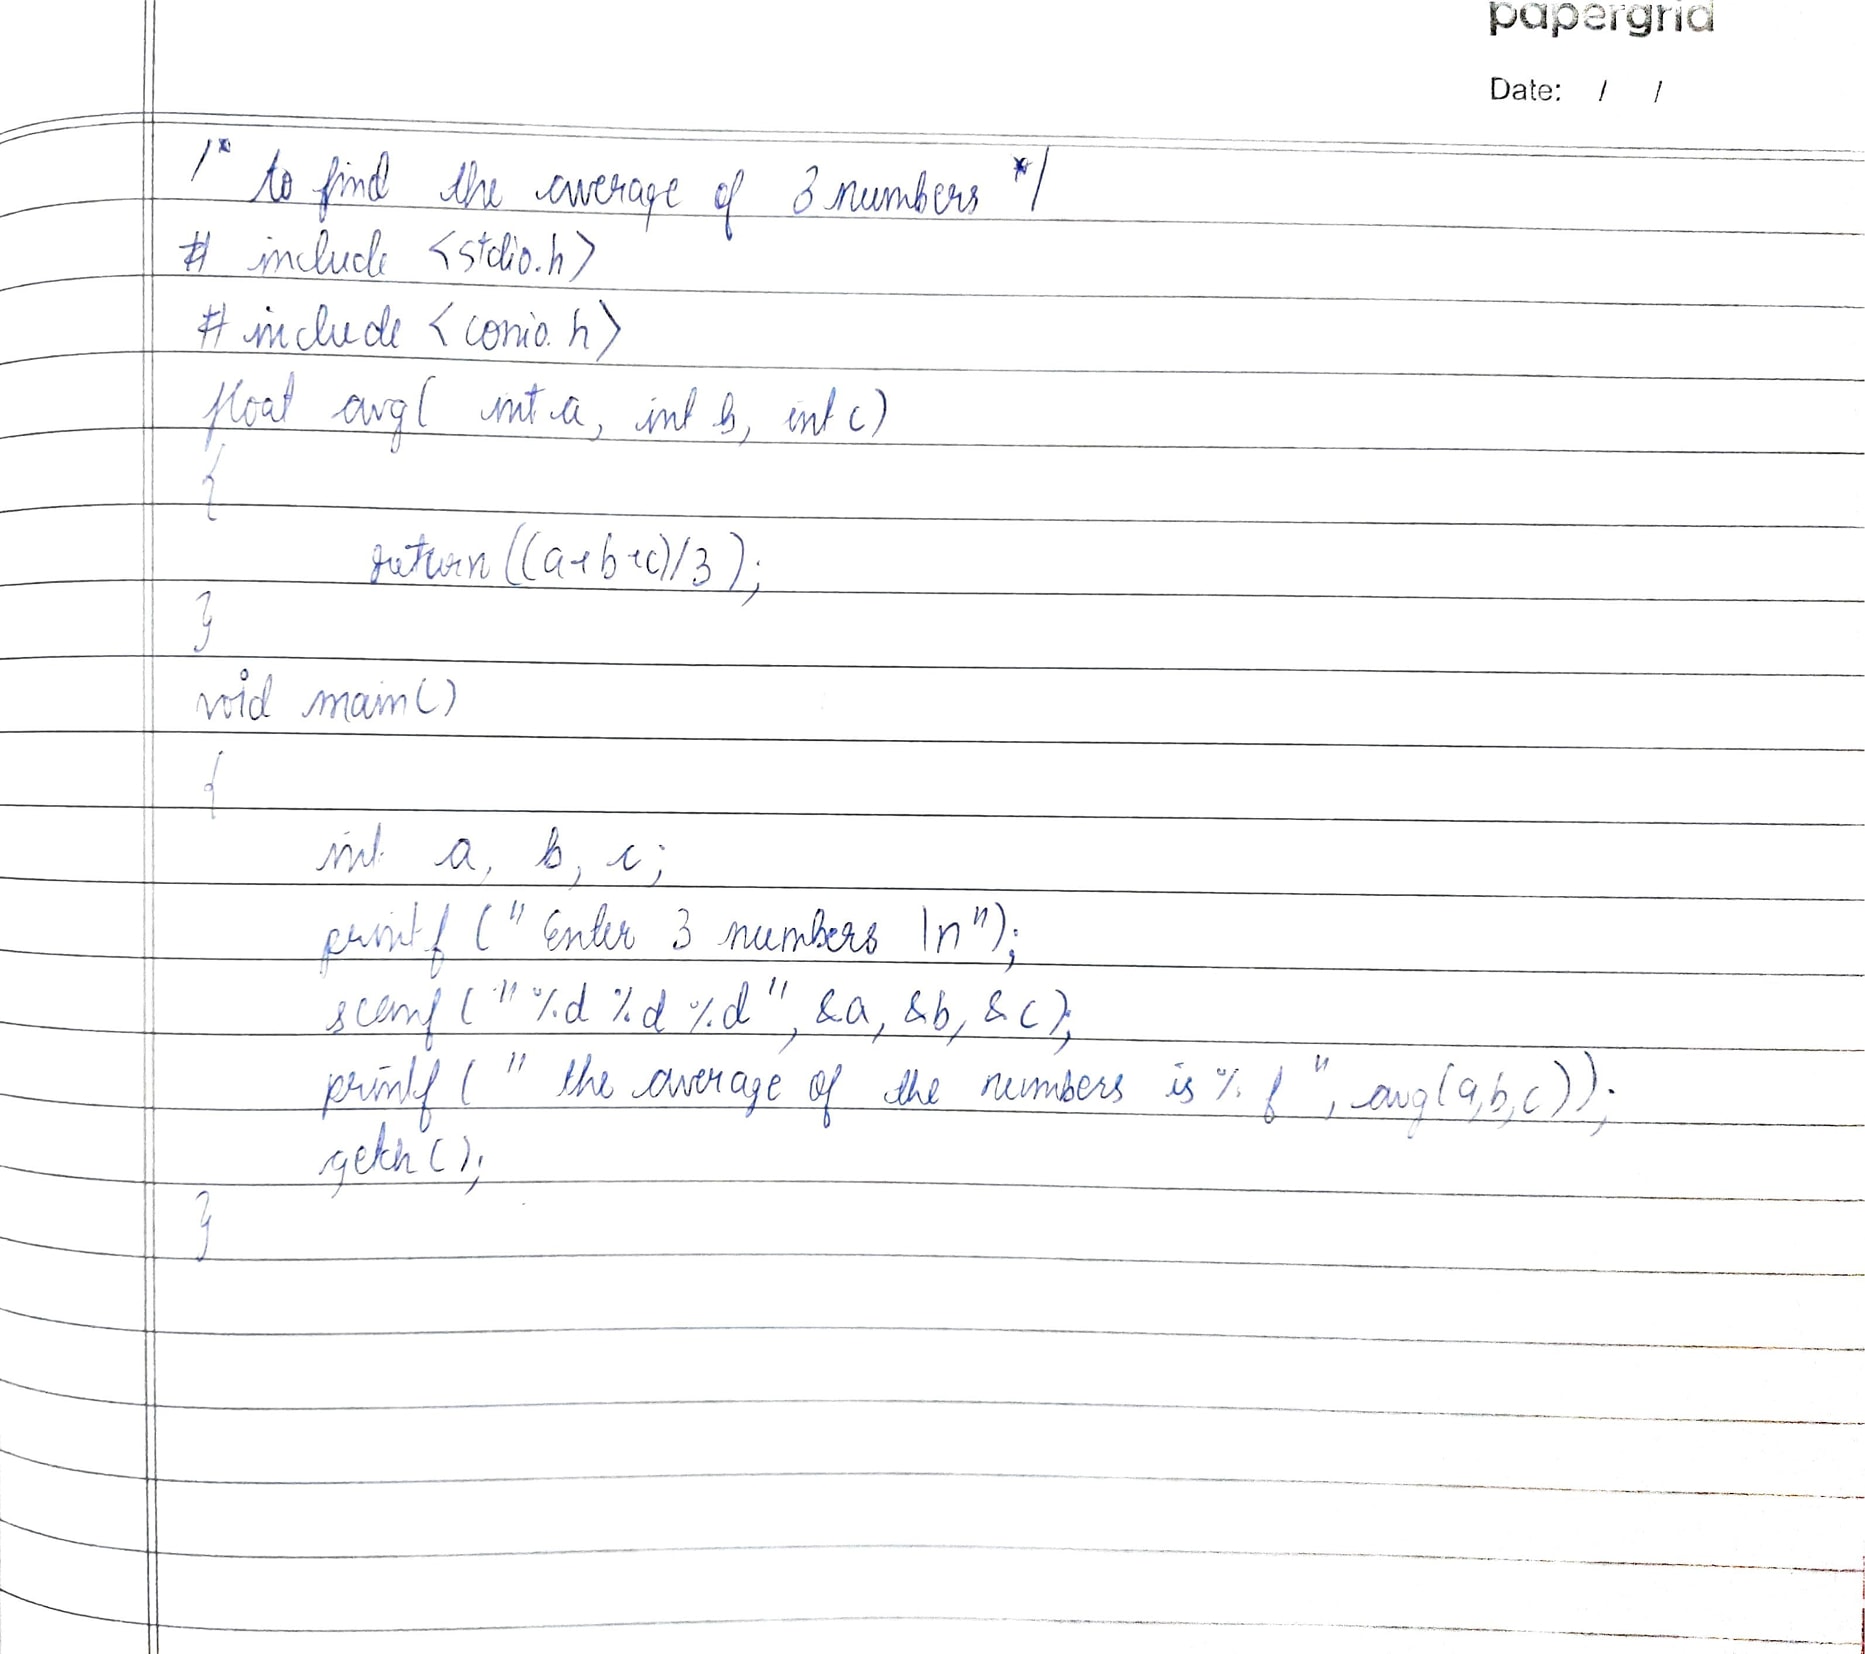 papergrid
Date: / /
/* to find the average of 3 numbers */
# include <stdio.h>
# include <conio.h>
float avg( int a, int b, int c)
{
return((a+b+c)/3);
}
void main()
{
int a, b, c;
printf (" Enter 3 numbers \n");
scanf (" %d %d %d", &a, &b, &c);
printf (" the average of the numbers is %f ", avg(a,b,c));
getch();
}